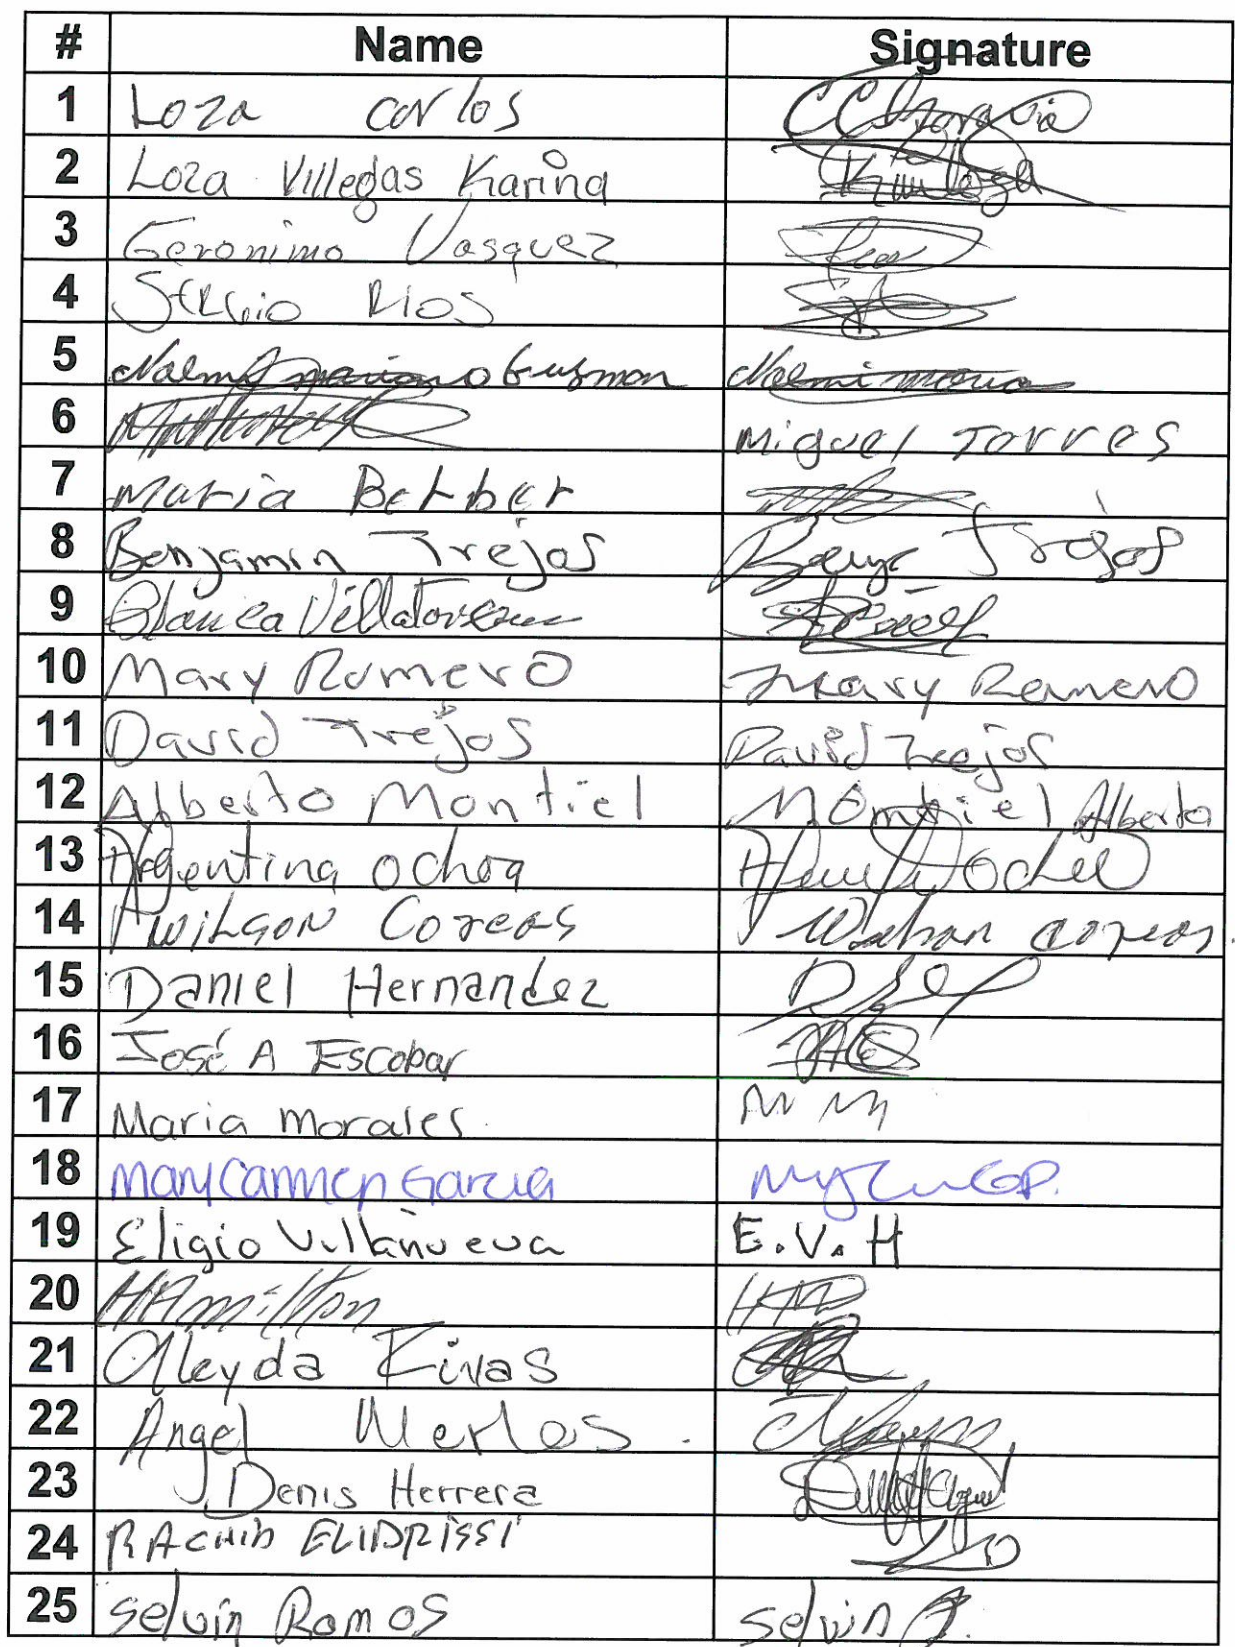 # Name Signature
1 Loza Carlos
2 Loza Villegas Karina
3 Geronimo Vasquez
4 Sergio Rios
5 Noemi Mariano Guzman Noemi maria
6 Miguel Torres
7 Maria Berber
8 Benjamin Trejos Trejos
9 Blanca Villatoro
10 Mary Romero Mary Romero
11 David Trejos David Trejos
12 Alberto Montiel Montiel Alberto
13 Argentina Ochoa Ochoa
14 Wilson Coreas Wilson coreas
15 Daniel Hernandez
16 José A Escobar
17 Maria Morales
18 Mary Carmen Garcia
19 Eligio Villanueva E.V.H
20 HAmilton
21 Aleyda Rivas
22 Angel Merlos
23 Denis Herrera
24 RACHID ELIDRISSI
25 Selvin Ramos Selvin R.